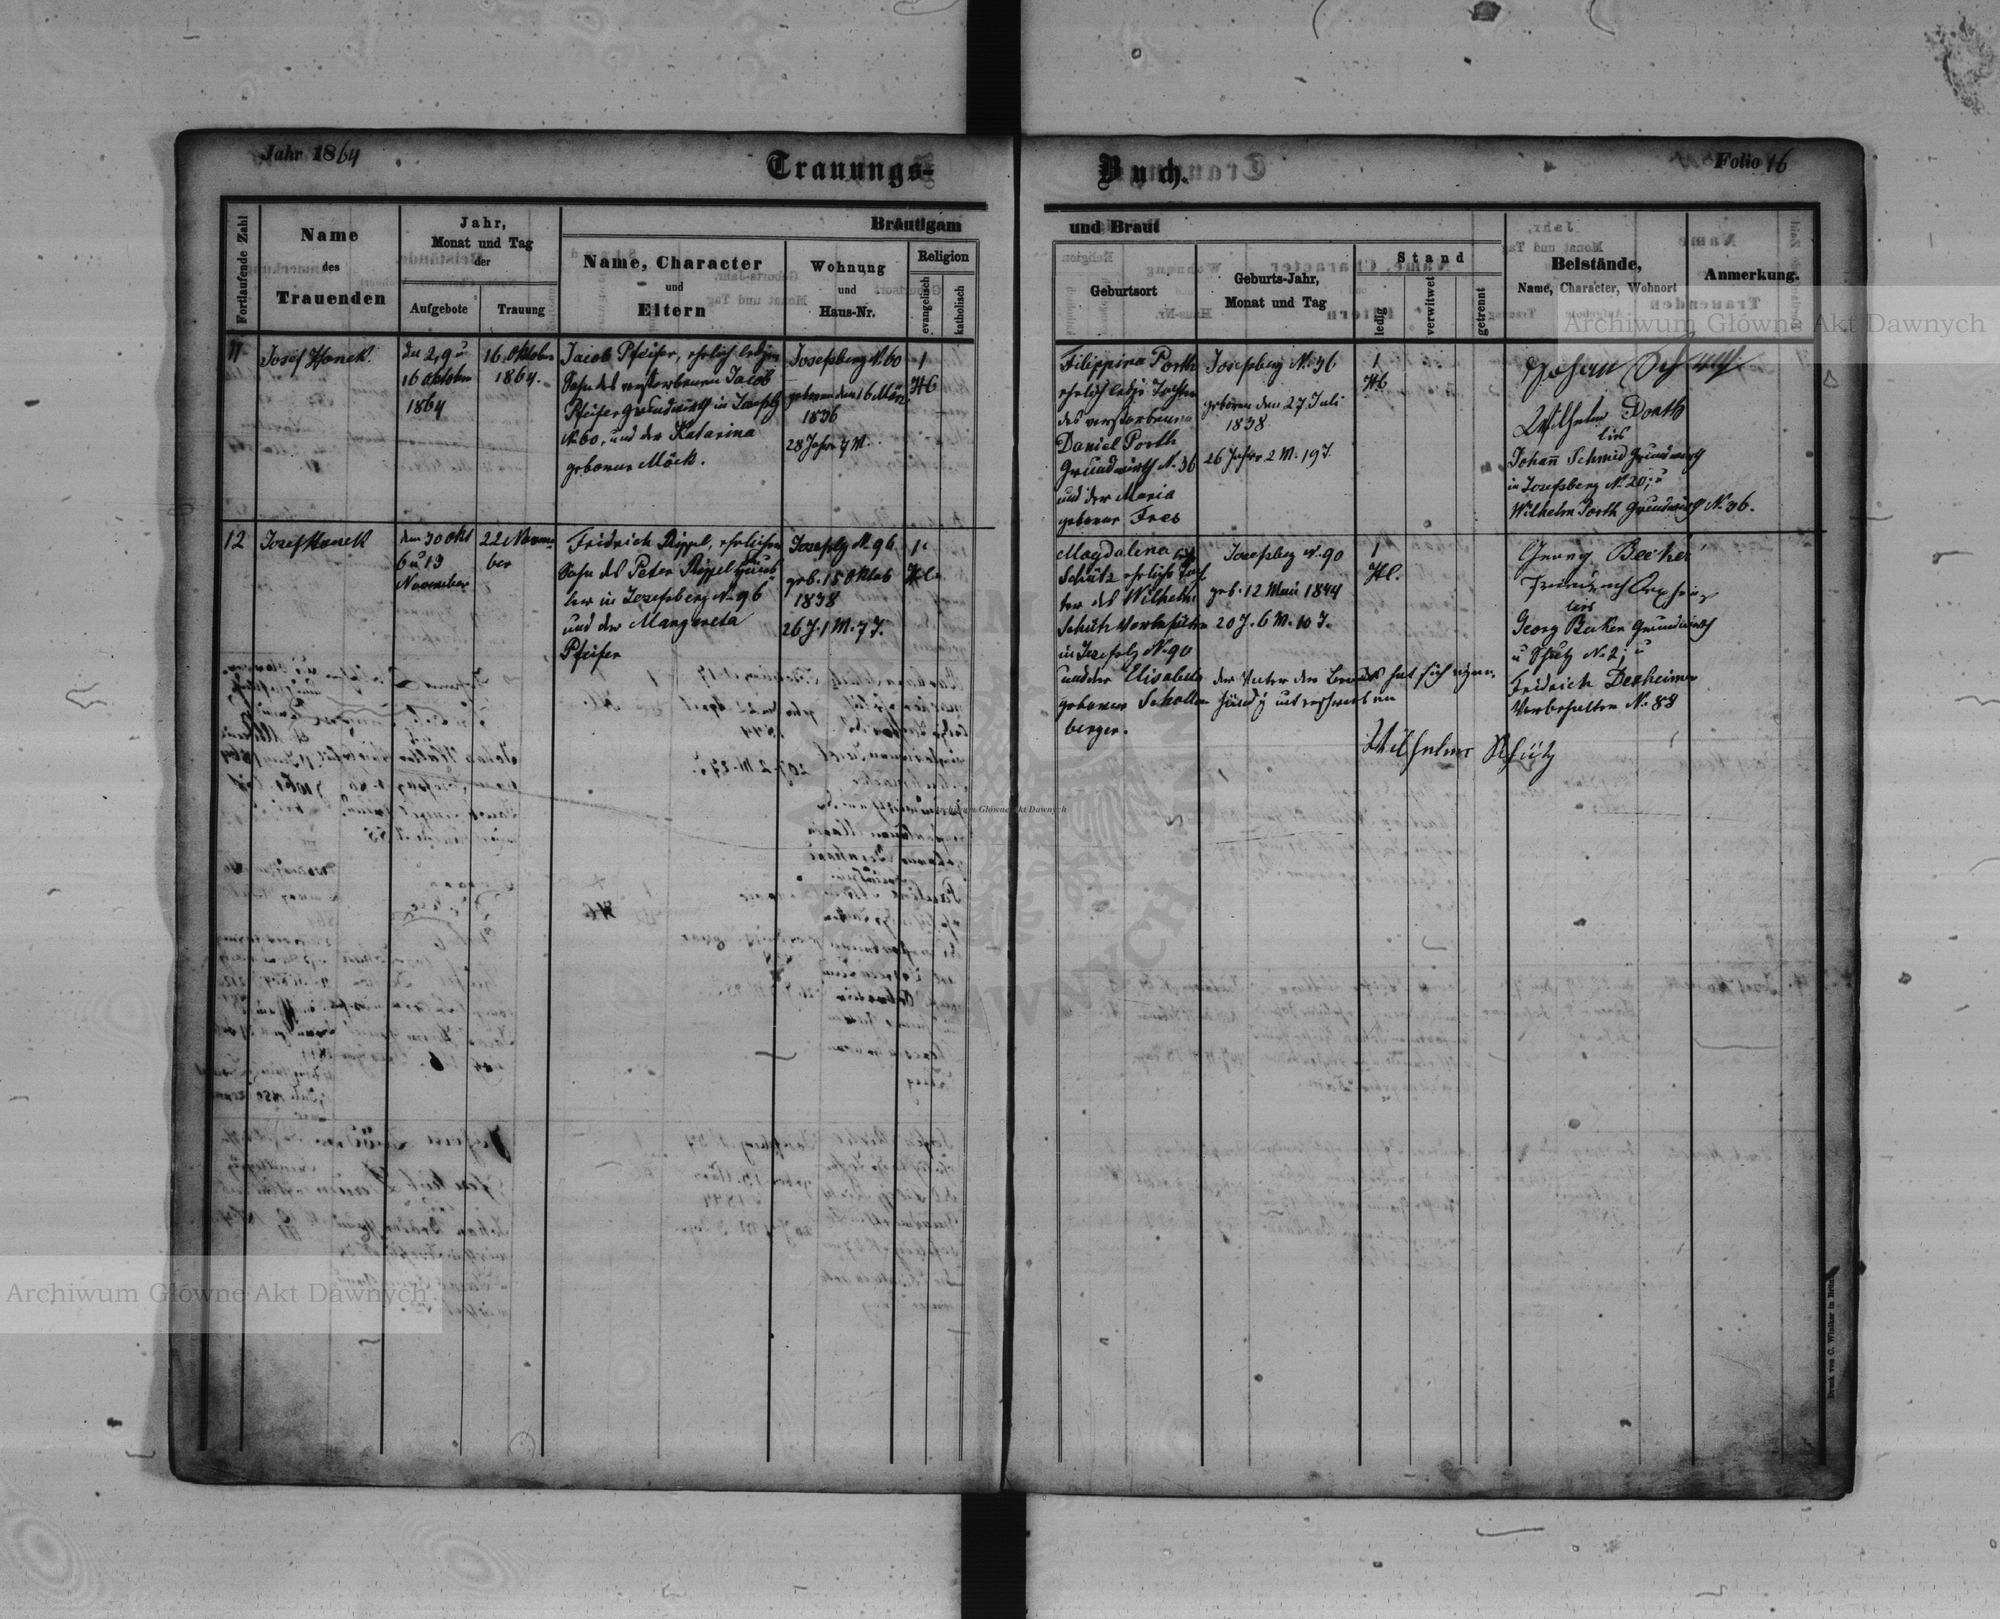 Jahr 1864
Trauungs-
Buch.
Folio 16
Fortlaufende Zahl
Name
des
Trauenden
Jahr,
Monat und Tag
der
Aufgebote
Trauung
Bräutigam
Name, Character
und
Eltern
Wohnung
und
Haus-Nr.
Religion
evangelisch
katholisch
und Braut
Geburtsort
Geburts-Jahr,
Monat und Tag
Stand
ledig
verwitwet
getrennt
Beistände,
Name, Character, Wohnort
Anmerkung.
11
Josef Hanek.
den 2, 9 u
16 Oktober
1864
16. Oktober
1864.
Jacob Pfeifer, ehrlich lediger
Sohn des verstorbenen Jacob
Pfeifer Grundwirth in Josefsbg
N. 60, und der Katarina
geborene Möck.
Josefsberg N. 60
geboren den 16 März
1836
28 Jahre 7 M.
1
HC
Filippina Porth
ehrlich ledige Tochter
des verstorbenen
Daniel Porth
Grundwirth N. 36
und der Maria
geborene Fres
Josefsberg N. 36
geboren den 27 Juli
1838
26 Jahre 2 M. 19 T.
1
HC
Johan Schmit
Wilhelm Porth
Johann Schmid Grundwirth
in Josefsberg N. 20; u
Wilhelm Porth Grundwirth N. 36.
12
Josef Hanek
den 30 Okt
6 u 13
November
22 Novem-
ber
Fridrich Rippel, ehrlicher
Sohn des Peter Rippel Häus-
ler in Josefsberg N. 96
und der Margareta
Pfeifer
Josefsbg N. 96
geb. 15 Oktob
1838
26 J. 1 M. 7 T.
1
HC
Magdalena
Schütz ehrliche Toch-
ter des Wilhelm
Schütz Vorbesitzer
in Josefsbg N. 90
und der Elisabeta
geborene Schallen-
berger.
Josefsbg N. 90
geb. 12 Mai 1844
20 J. 6 M. 10 T.
1
HC.
der Vater der Braut hat sich eigen-
händig unterschrieben
Wilhelm Schütz
Georg Becker
Georg Beker Grundwirth
u N. 2; u
Fridrich Dexheimer
Vorbesitzer N. 88
Druck von C. Winiker in Brünn
Archiwum Główne Akt Dawnych
Archiwum Główne Akt Dawnych
Archiwum Główne Akt Dawnych